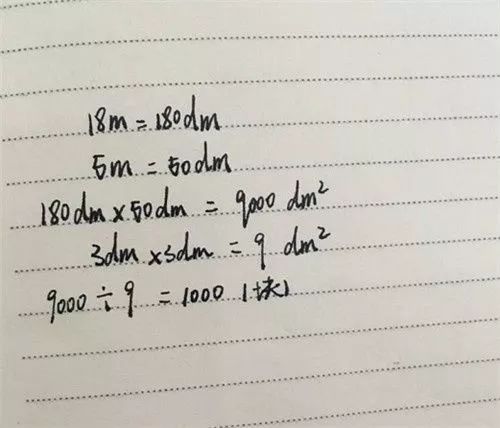 18m = 180dm
5m = 50dm
180dm × 50dm = 9000 dm²
3dm × 3dm = 9 dm²
9000 ÷ 9 = 1000 (块)